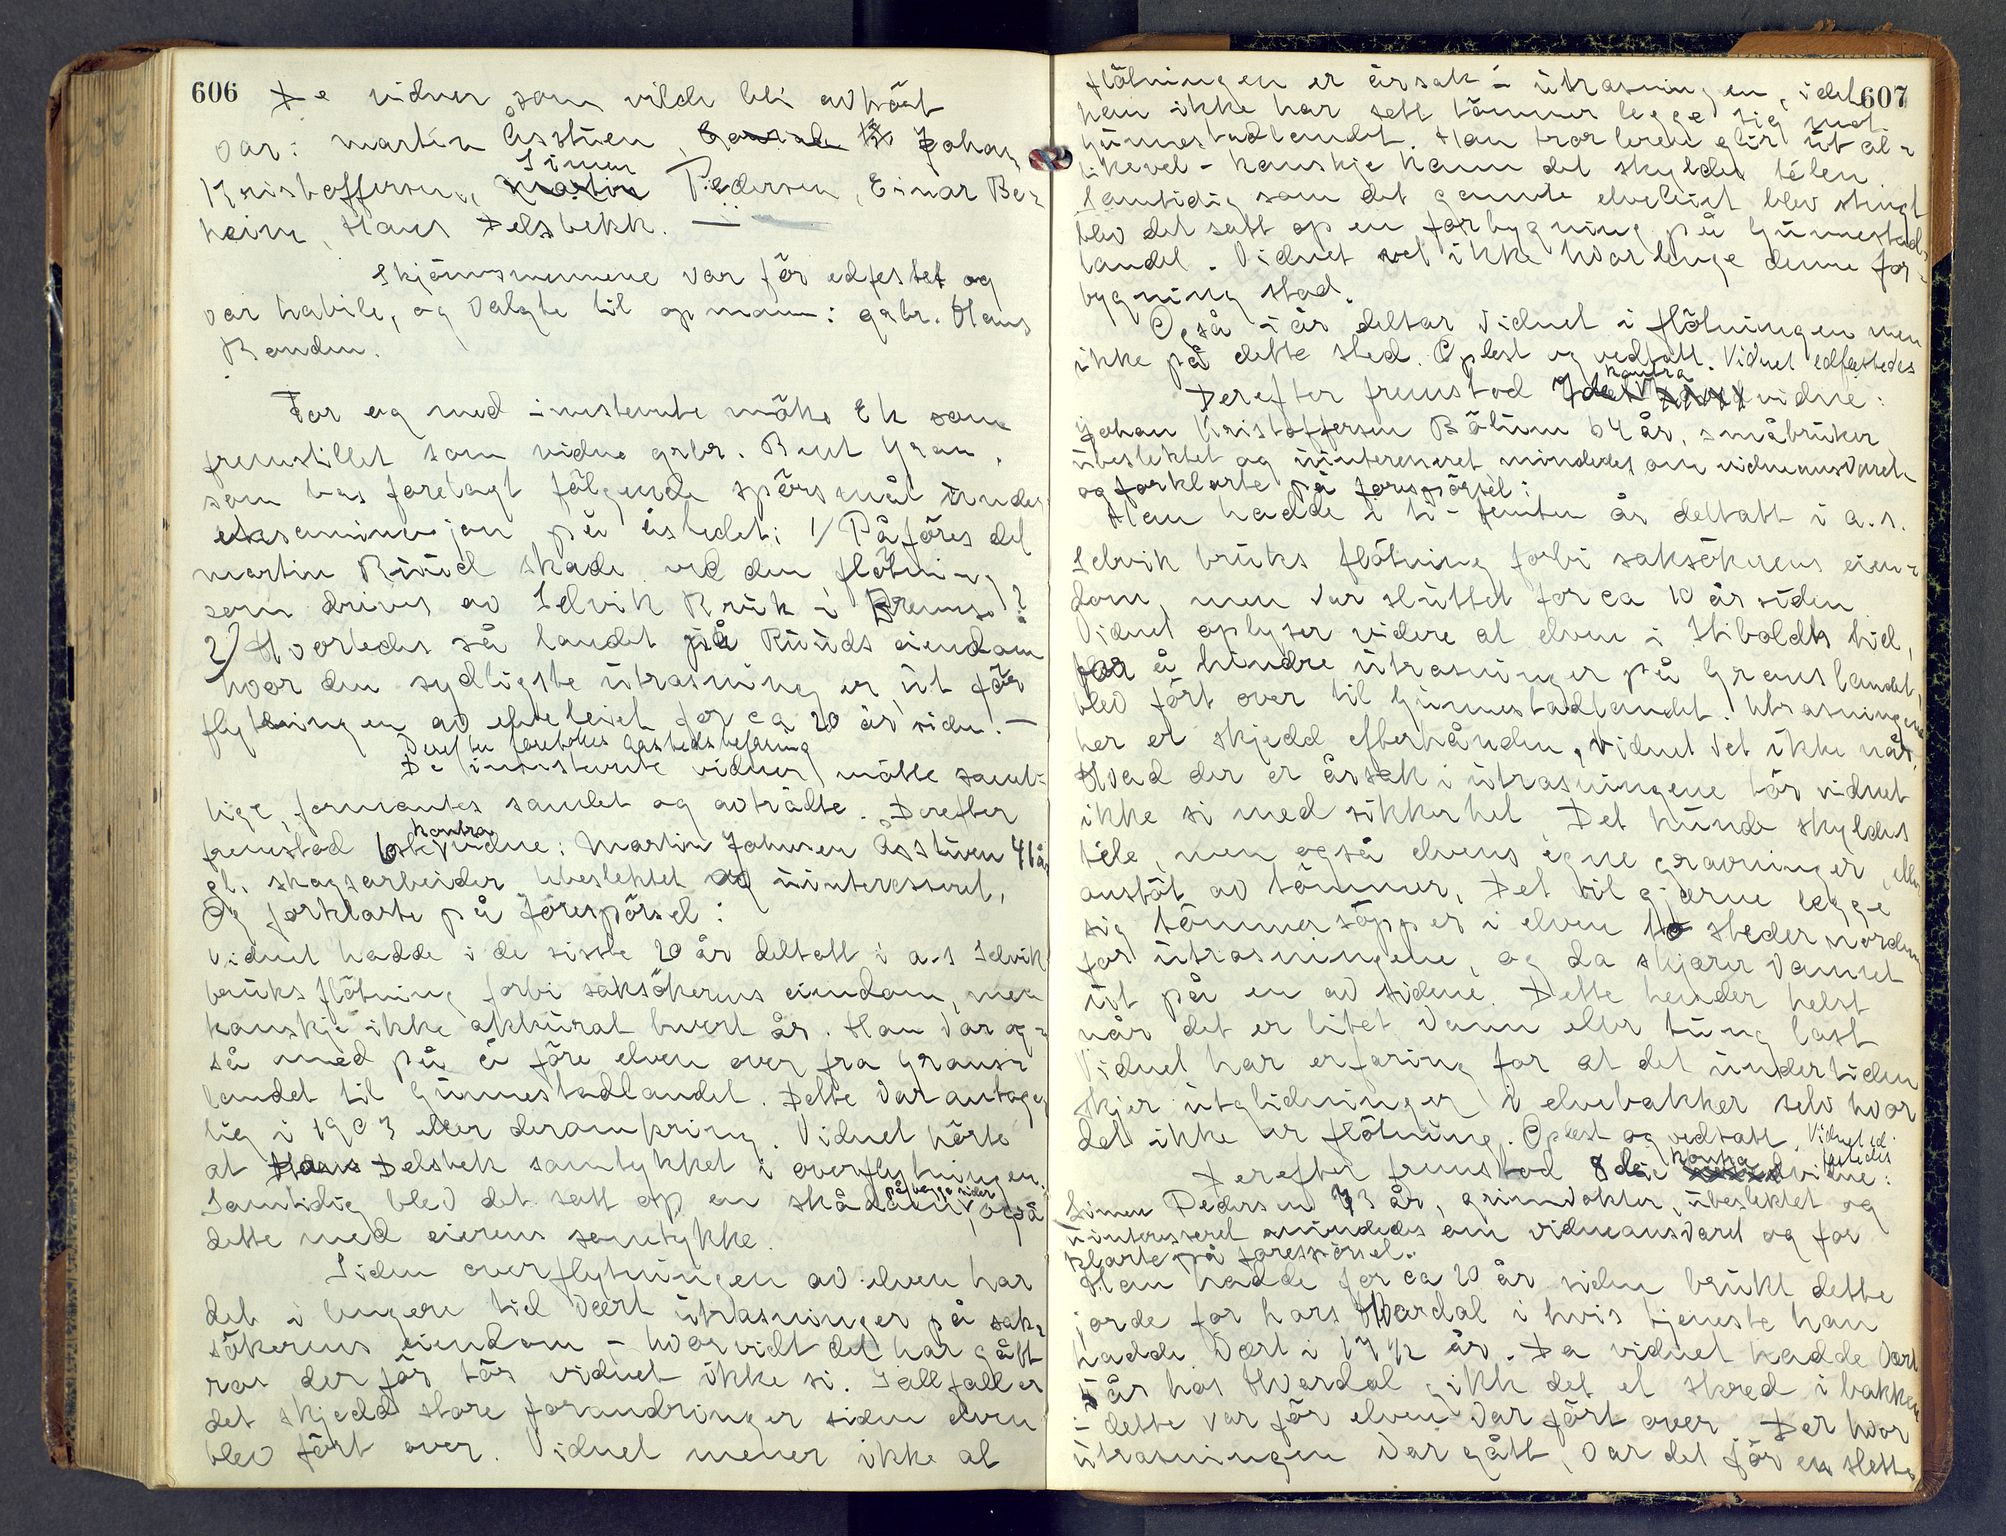 606
De vidner som vilde bli avhørt
var: Martin Åsstuen, Johan
Kristoffersen, Simen Pedersen, Einar Ber-
heim, Hans Delsbekk. —
Skjønsmennene var før edfestet og
var habile, og valgte til opmann: gbr. Hans
Randen.
For øg med innstevnte møtte Ek som
fremstillet som vidne grbr. Bent Gran,
som bas forelagt følgende spørsmål under
eksaminasjon på åstedet: 1/ Påføres det
Martin Ruud skade ved den fløtning
som drives av Selvik Bruk i Drams?
2) Hvorledes så landet på Ruuds eiendom
hvor den sydligste utrasning er, ut før
flytningen av elveleiet for ca 20 år siden. —
Derefter foretokes åstedsbefaring
De innstevnte vidner møtte samt-
lige, formantes samlet og avtrådte. Derefter
kontra
fremstod 6te vidne: Martin Johnsen Åsstuen 41 år
gl. skogsarbeider ubeslektet og uinteressert,
Og forklarte på forespørsel:
Vidnet hadde i de siste 20 år deltatt i a.s Selvik
bruks fløtning forbi saksøkerens eiendom, men
kanskje ikke akkurat hvert år. Han var og-
så med på å føre elven over fra Grans-
landet til Gunnestadlandet. Dette var antage-
lig i 1903 eller deromkring. Vidnet hørte
at Hans Delsbek samtykket i overflytningen.
Samtidig blev det satt op en skådam på begge sider, også
dette med eierens samtykke.
Siden overflytningen av elven har
det i lengere tid vært utrasninger på sak-
søkerens eiendom – hvorvidt det har gått
ras der før tør vidnet ikke si. Iallfall er
det skjedd store forandringer siden elven
blev ført over. Vidnet mener ikke at
607
fløtningen er årsak i utrasningen, idet
han ikke har sett tømmer legge sig mot
Gunnestadlandet. Han tror leret glir ut al-
likevel – kanskje kann det skyldes télen.
Samtidig som det gamle elveleiet blev stengt
blev det satt op en forbygning på Gunnestad-
landet. Vidnet vet ikke hvor lenge denne for-
bygning stod.
Også i år deltar vidnet i fløtningen men
ikke på dette sted. Oplest og vedtatt. Vidnet edfæstedes
Derefter fremstod 7de kontra vidne:
Johan Kristoffersen Bålum 64 år, småbruker
ubeslektet og uinteressert mindedes om vidneansvaret
og forklarte på forespørsel:
Han hadde i ti-femten år deltatt i a.s.
Selvik bruks fløtning forbi saksøkerens eien-
dom, men var sluttet for ca 10 år siden
Vidnet oplyser videre at elven i Hiboldts tid,
for å hindre utrasninger på Granslandet,
blev ført over til Gunnestadlandet. Utrasningene
her er skjedd efterhånden, vidnet vet ikke når.
Hvad der er årsak i utrasningene tør vidnet
ikke si med sikkerhet. Det kunde skyldes
téle, men også elvens egne gravninger, eller
anstøt av tømmer. Det vil gjerne legge
sig tømmersopper i elven to steder norden-
for utrasningene, og da skjærer vannet
ut på en av sidene. Dette hender helst
når det er litet vann eller tung last
Vidnet har erfaring for at det undertiden
skjer utglidninger i elvebakker selv hvor
det ikke er fløtning. Oplest og vedtatt. Vidnet ed-
festedes
Derefter fremstod 8de kontra vidne:
Simen Pedersen 73 år, grindvokter, ubeslektet og
uinteressert mindedes om vidneansvaret og for
klarte på forespørsel.
Han hadde for ca 20 år siden brukt dette
jorde for hans Hvardal i hvis tjeneste han
hadde vært i 17 1/2 år. Da vidnet hadde vært
5 år hos Hvardal gikk det et skred i bakken
– dette var før elven var ført over. Der hvor
utrasningen var gått, var det før en slette